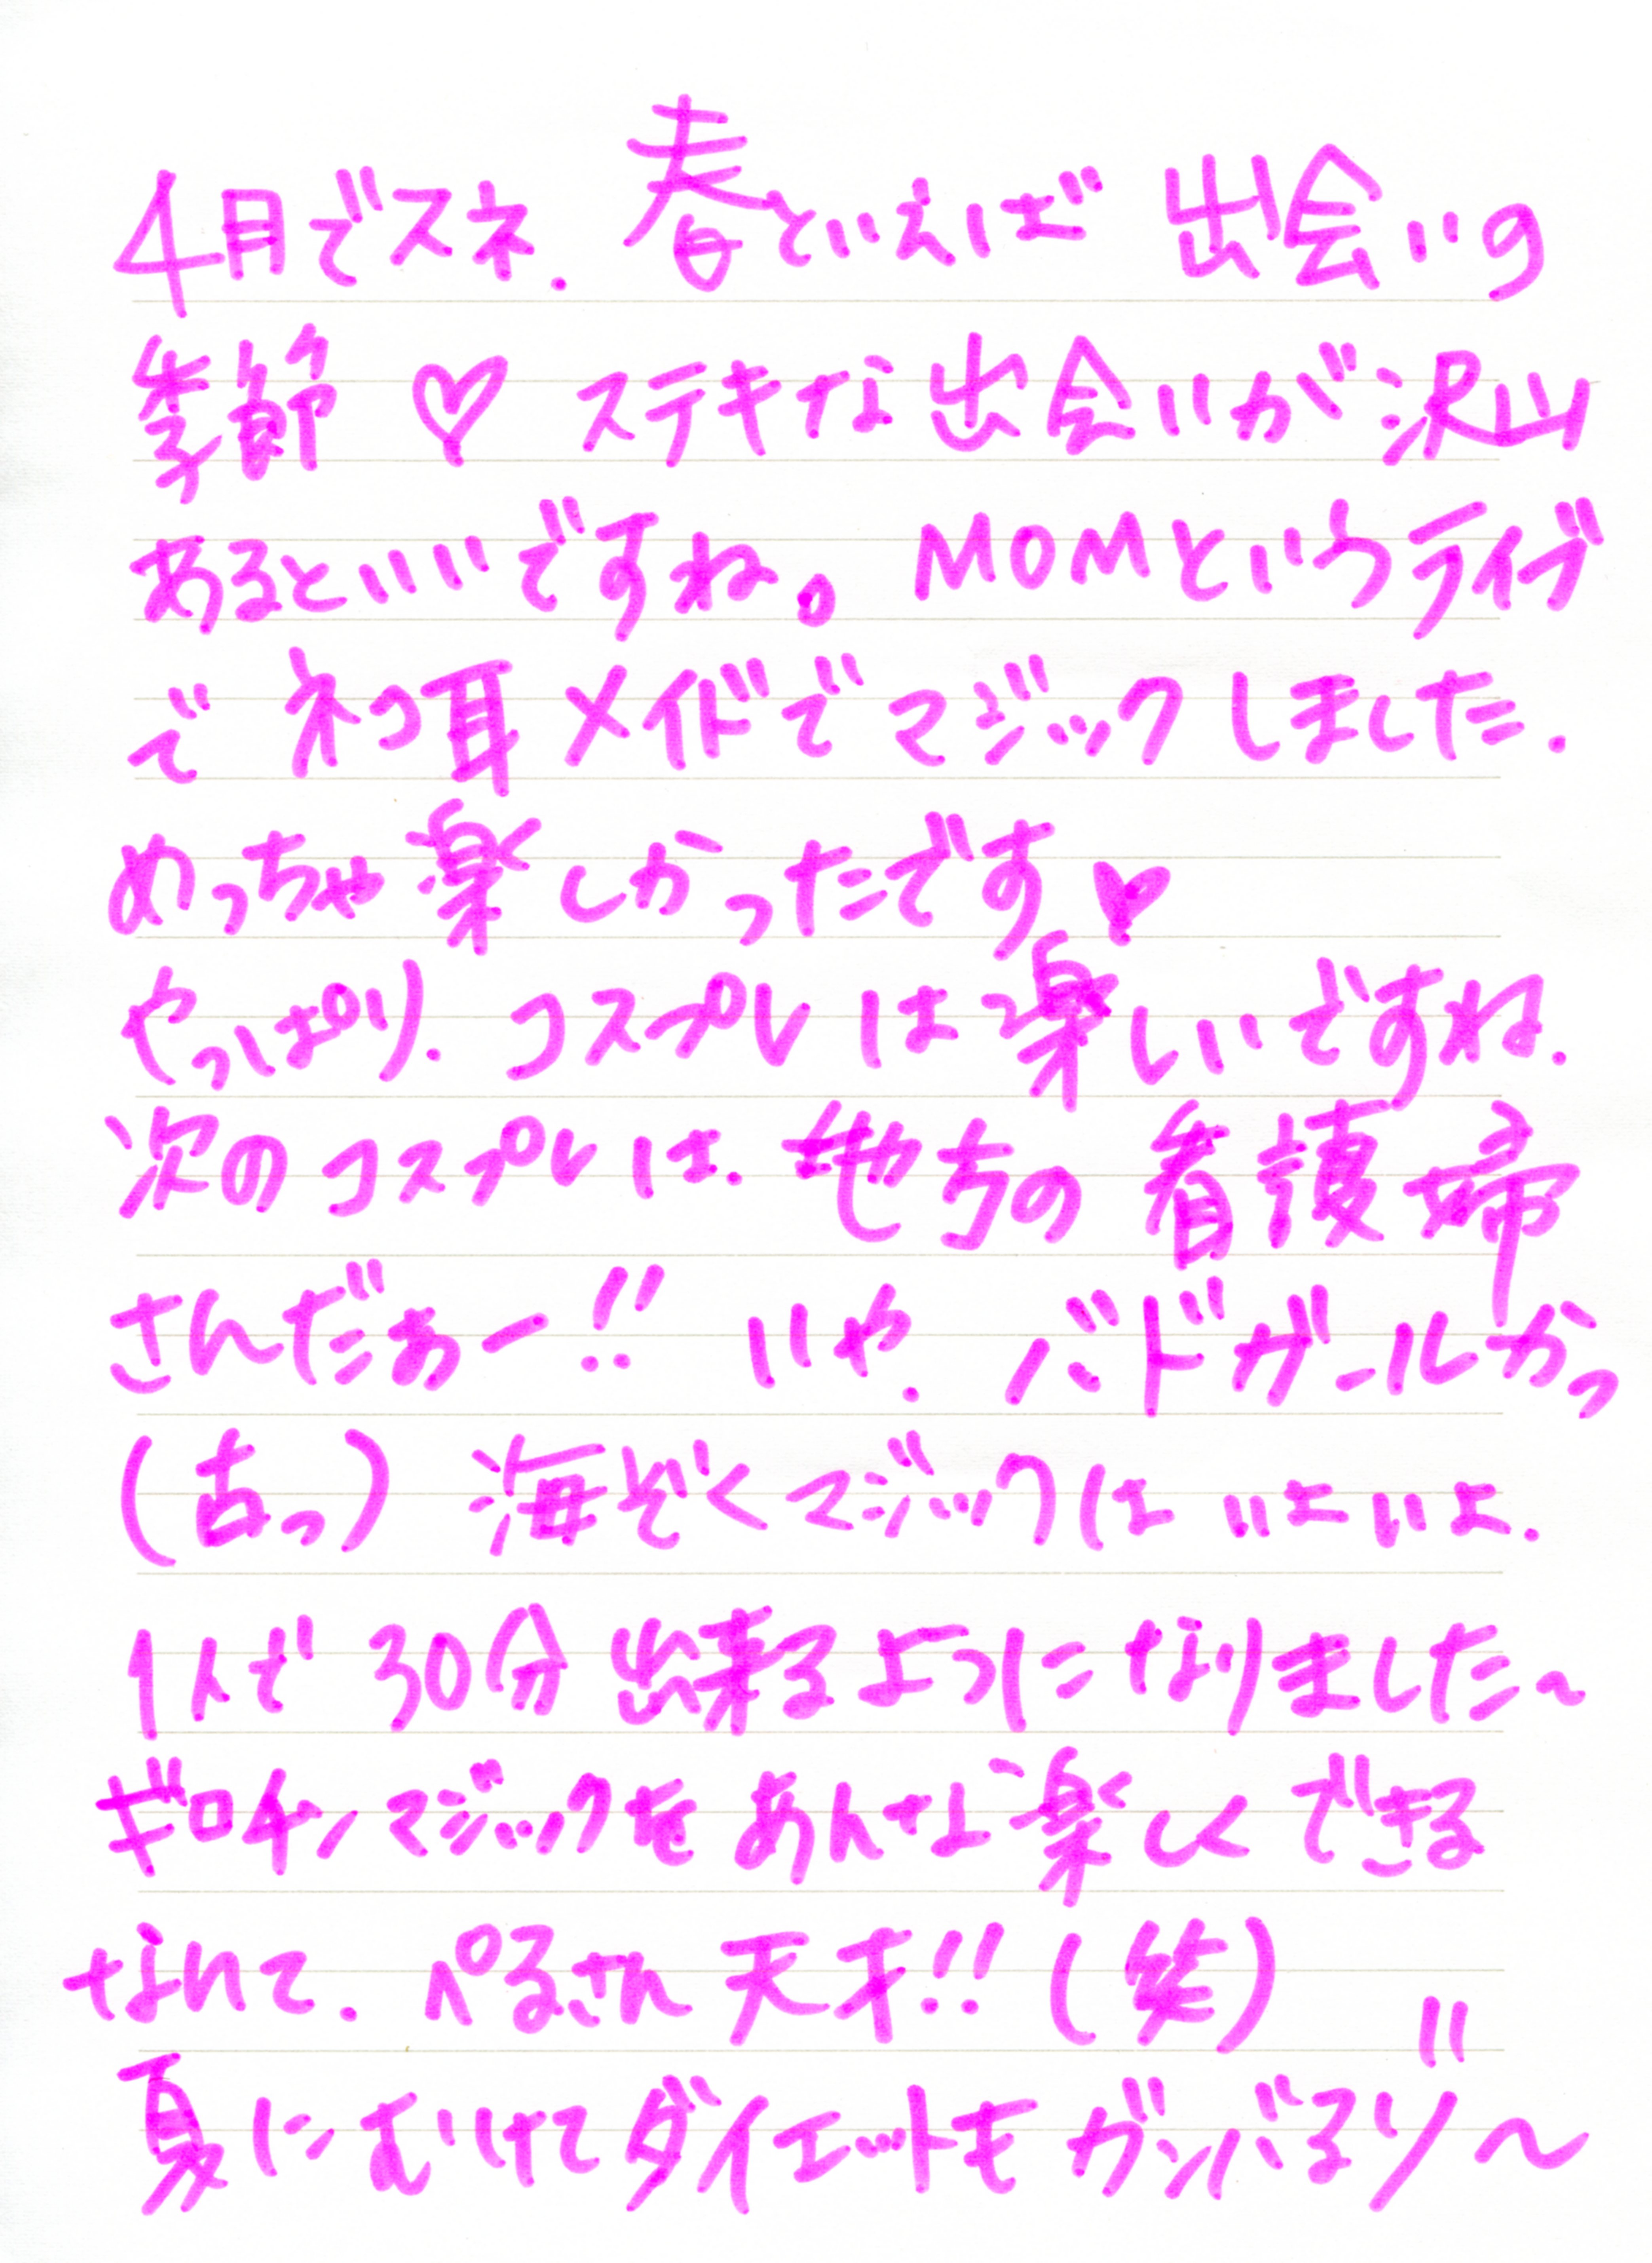 4月でスネ.春といえば 出会いの
季節♡ ステキな出会いが沢山
あるといいですね。MOMというライブ
で ネコ耳メイドでマジックしました.
めっちゃ楽しかったです♥
やっぱり.コスプレは楽しいですね.
次のコスプレは. の看護婦
さんだぁー!! いや.バドガールかっ
(古っ) 海ぞくマジックは いよいよ.
1人で 30分 出来るようになりました~
ギロチンマジックを あんな楽しく できる
なんて.ぺるさん 天才!! (笑)
夏にむけてダイエットも ガンバるゾ~